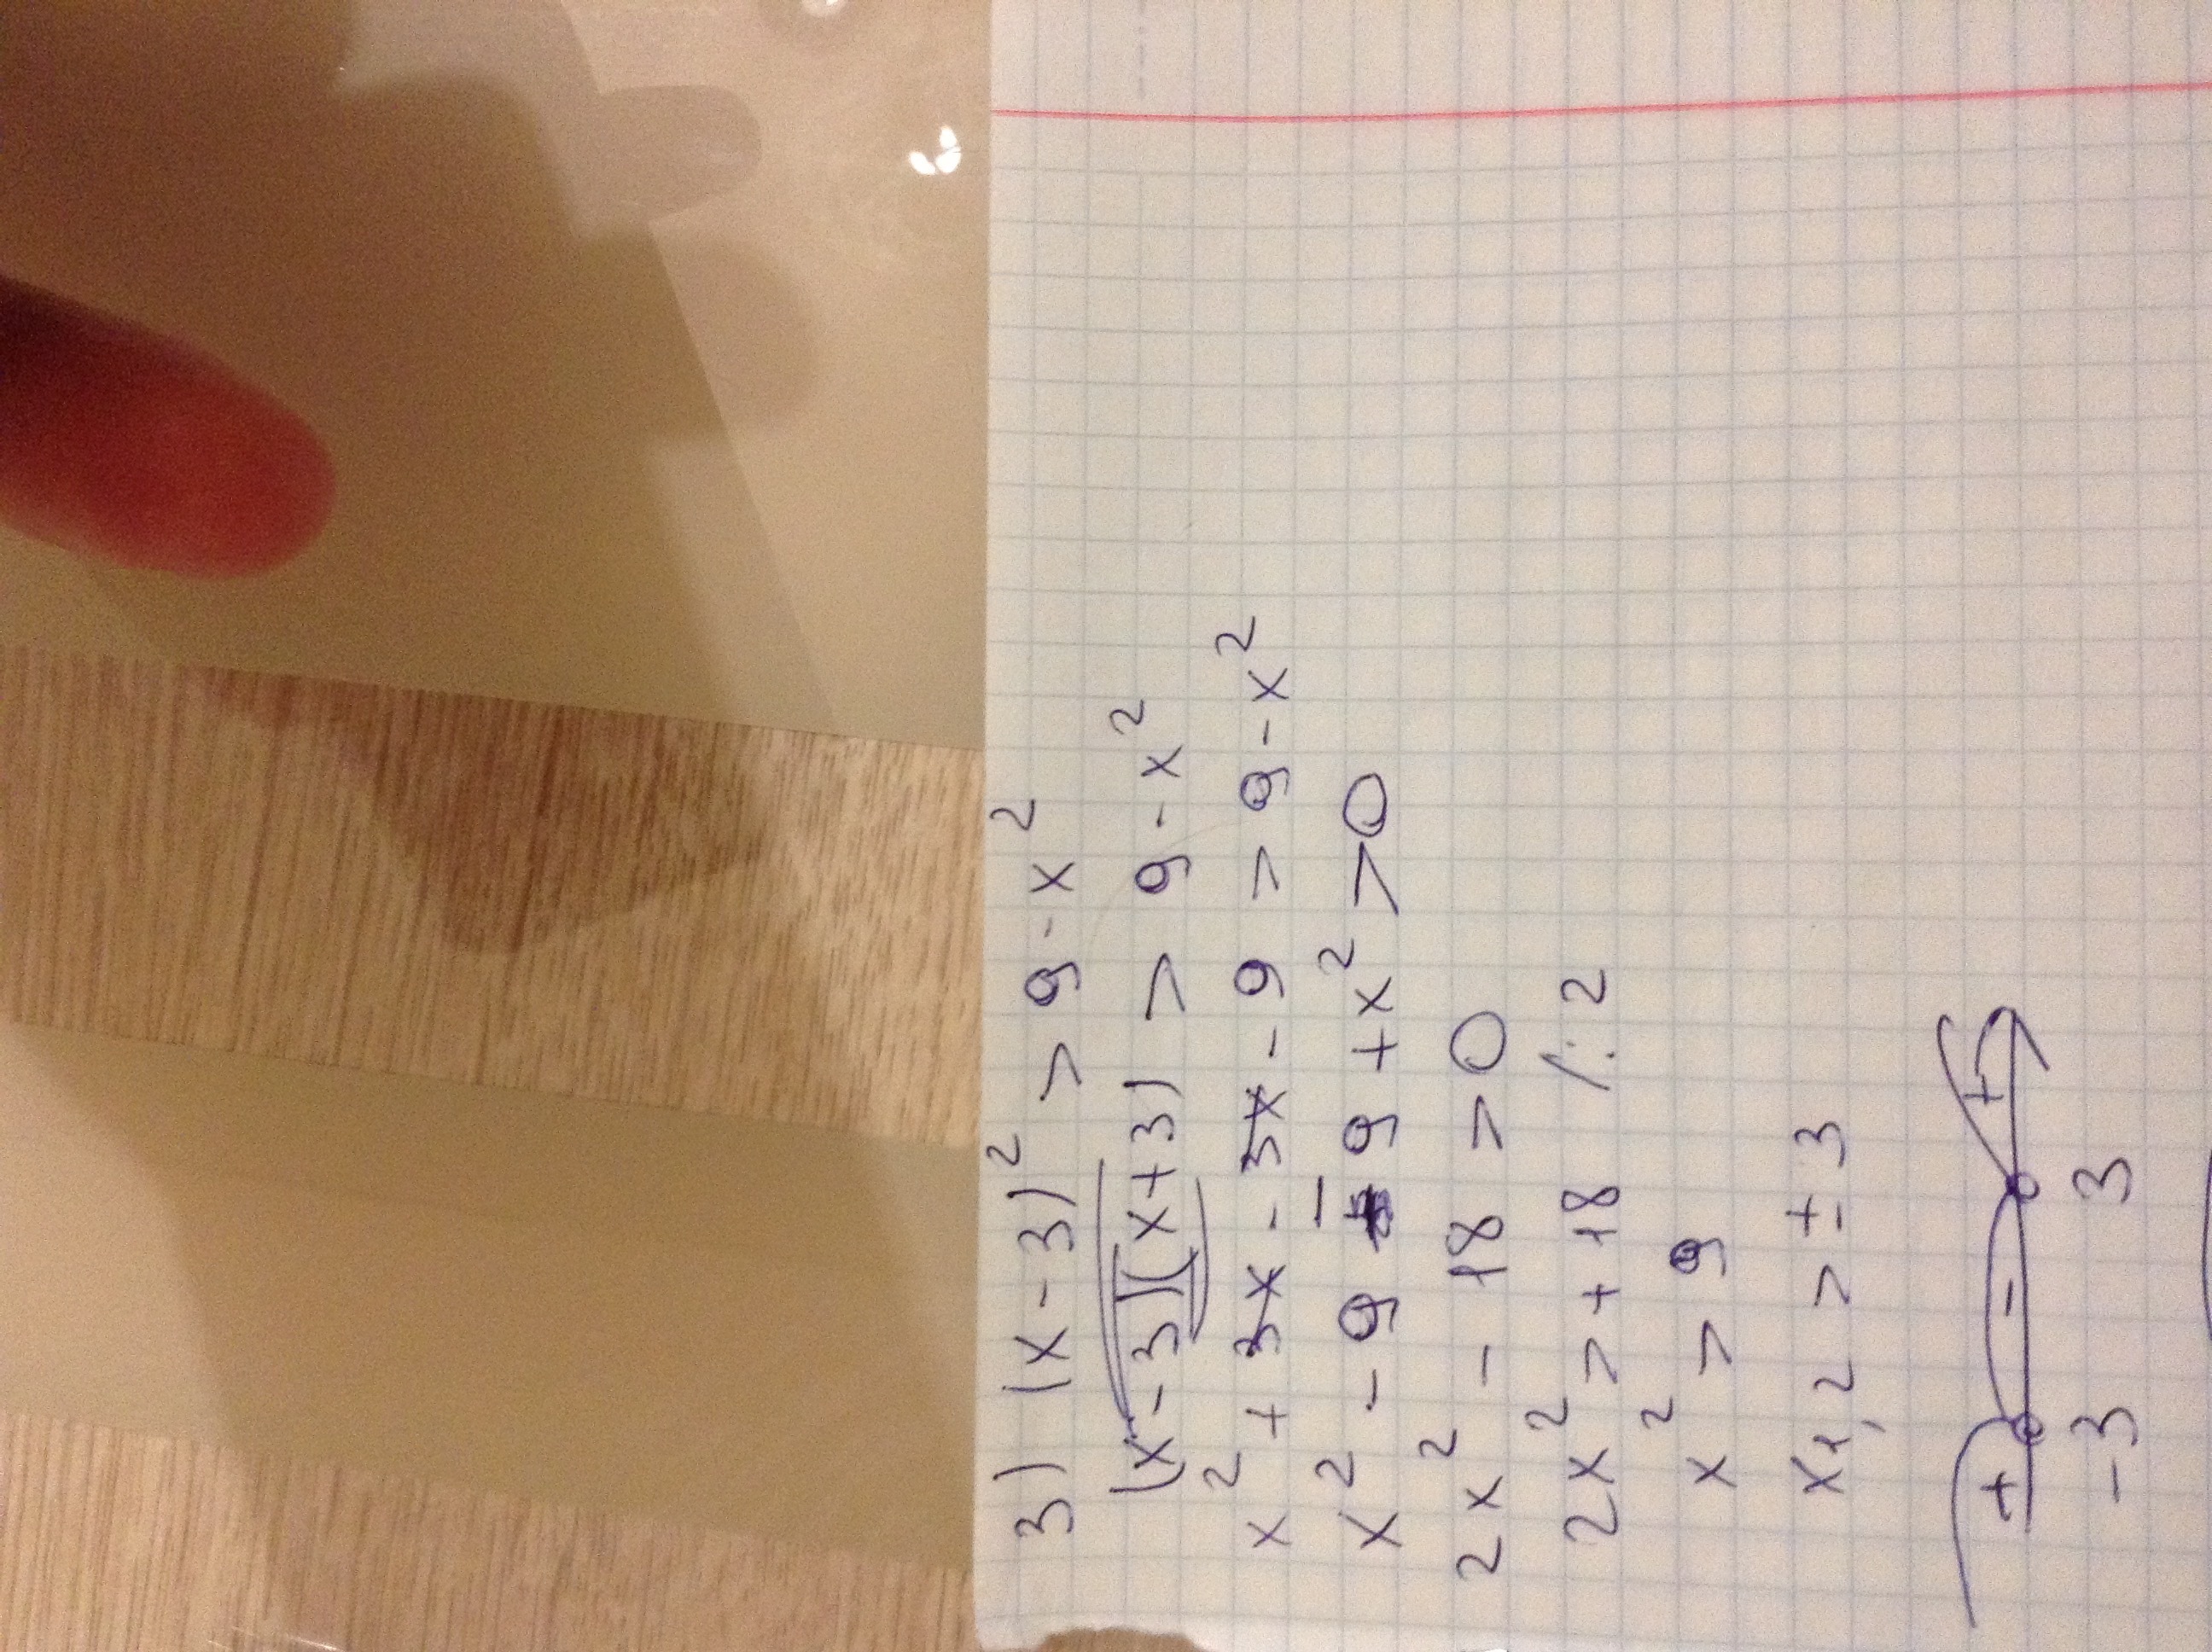 3) (x-3)² > 9-x²
(x-3)(x+3) > 9-x²
x² + 3x - 3x - 9 > 9-x²
x² - 9 - 9 + x² > 0
2x² - 18 > 0
2x² > + 18 /:2
x² > 9
x1,2 > ± 3
+ - +
-3 3